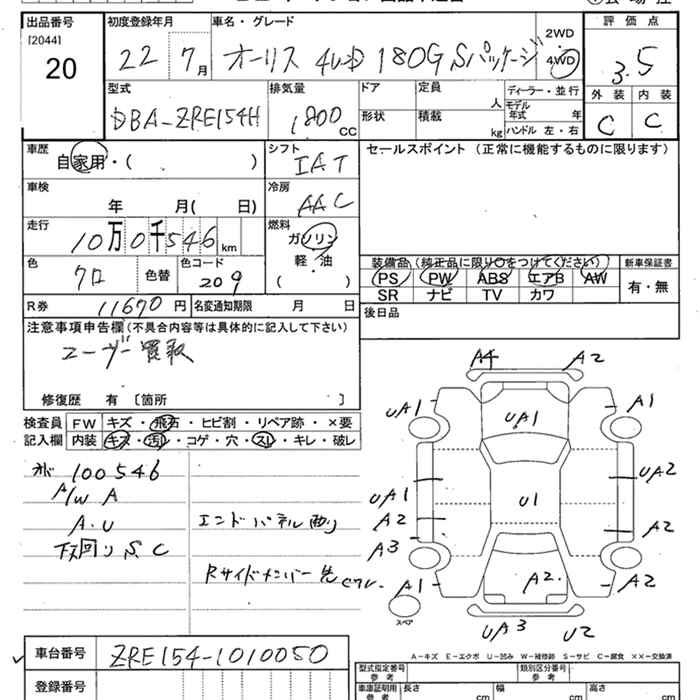 出品番号 [2044] 20
初度登録年月 22 7月
車名・グレード オーリス 4WD 180G Sパッケージ
2WD 4WD
評価点 3.5
外装 C 内装 C
型式 DBA-ZRE154H
排気量 1800 CC
ドア 形状
定員 人
積載 kg
ディーラー・並行
モデル年式 年
ハンドル 左・右
車歴 自家用・( )
シフト IAT
セールスポイント (正常に機能するものに限ります)
車検 年 月( 日)
冷房 AAC
走行 10万0千546km
燃料 ガソリン 軽・油 ( )
色 クロ 色替 色コード 209
装備品(純正品に限り○をつけてください) 新車保証書
PS PW ABS エアB AW 有・無
SR ナビ TV カワ
R券 11670円 名変通知期限 月 日
後日品
注意事項申告欄(不具合内容等は具体的に記入して下さい)
ユーザー買取
修復歴 有 〔箇所 〕
検査員記入欄
FW キズ・飛石・ヒビ割・リペア跡・×要
内装 キズ・汚れ・コゲ・穴・スレ・キレ・破レ
100546
A/W A
A.U
下回り S C
エンドパネル
Rサイドメンバー先
A4 A2
UA1 UA1 A1
UA1 U1 UA2
A2 A2
A3
A1 A2 A2
スペア
UA3 U2
A-キズ E-エクボ U-凹み W-補修跡 S-サビ C-腐食 XX-交換済
車台番号 ZRE154-1010050
登録番号
型式指定番号 参考 類別区分番号 参考
車庫証明用 参考 長さ cm 幅 cm 高さ cm